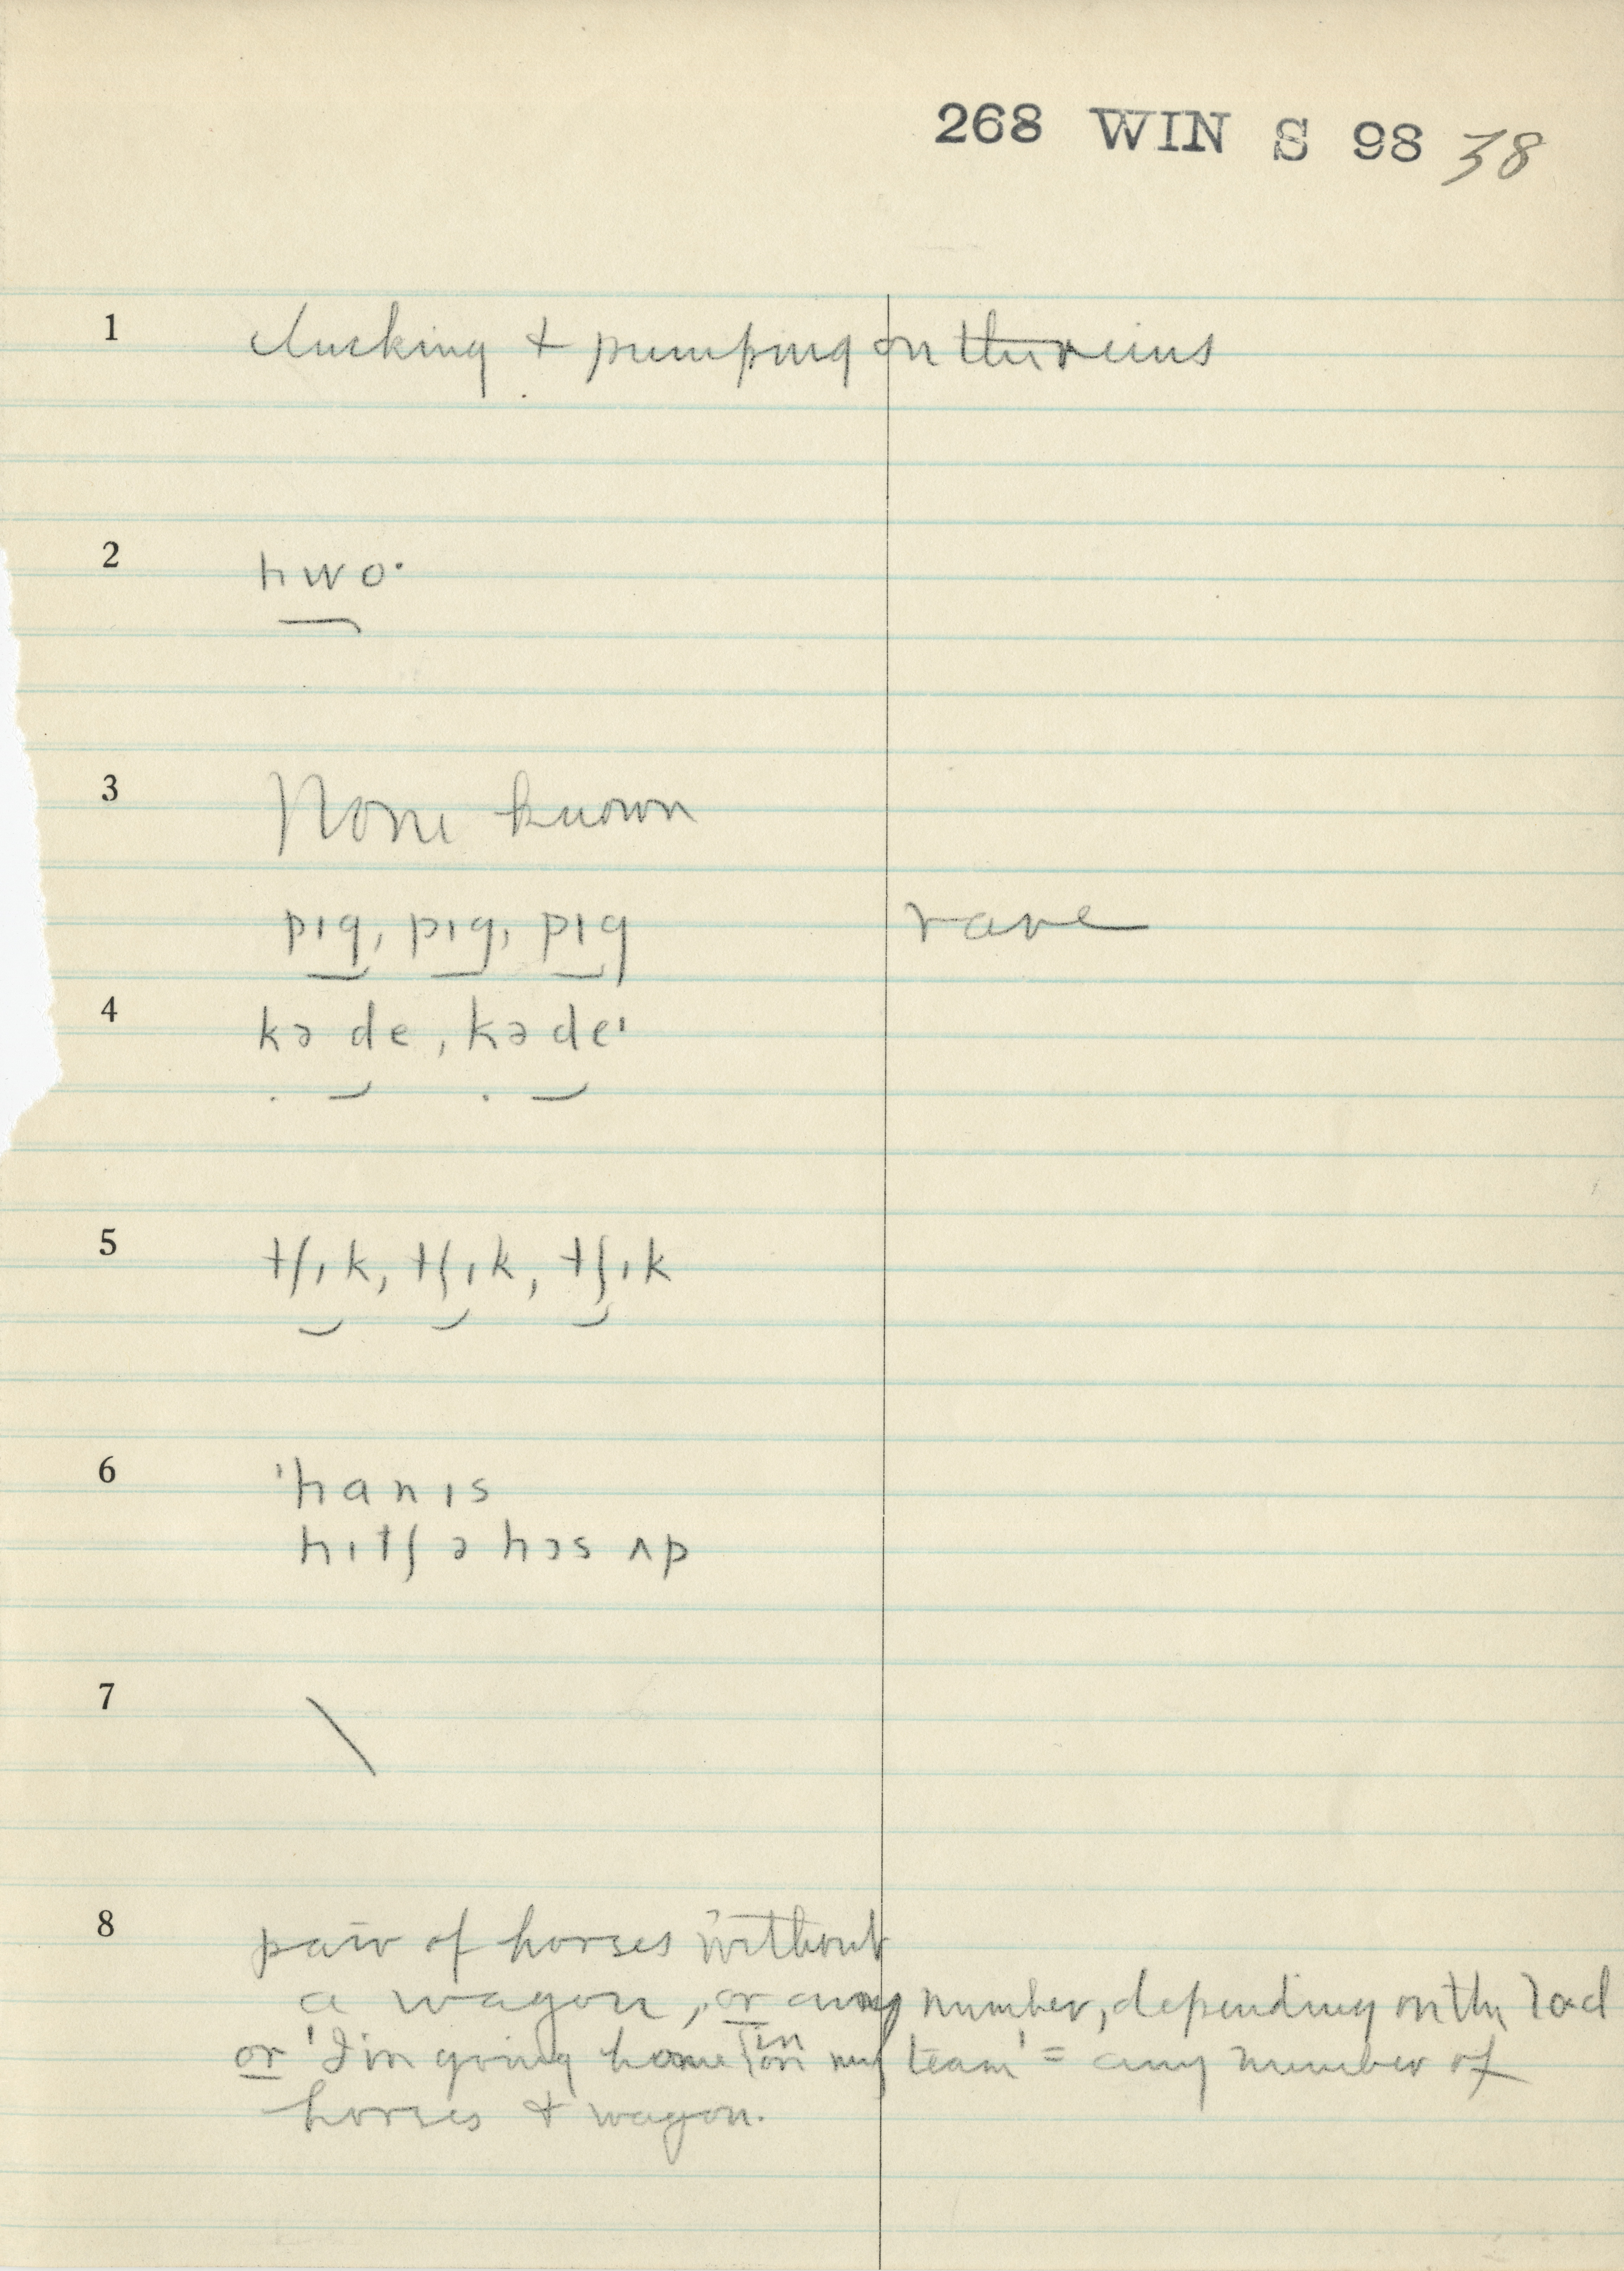 268 WIN S 98 38
1 clucking + pumping on the reins
2 hwo·
3 None known
pɪg, pɪg, pɪg rare
4 kə de, kə de'
5 tʃɪk, tʃɪk, tʃɪk
6 'hanɪs
hɪtʃ ə hɔs ʌp
7 \
8 pair of horses without
a wagon, or any number, depending on the load
or 'I'm going home in on my team' = any number of
horses + wagon.